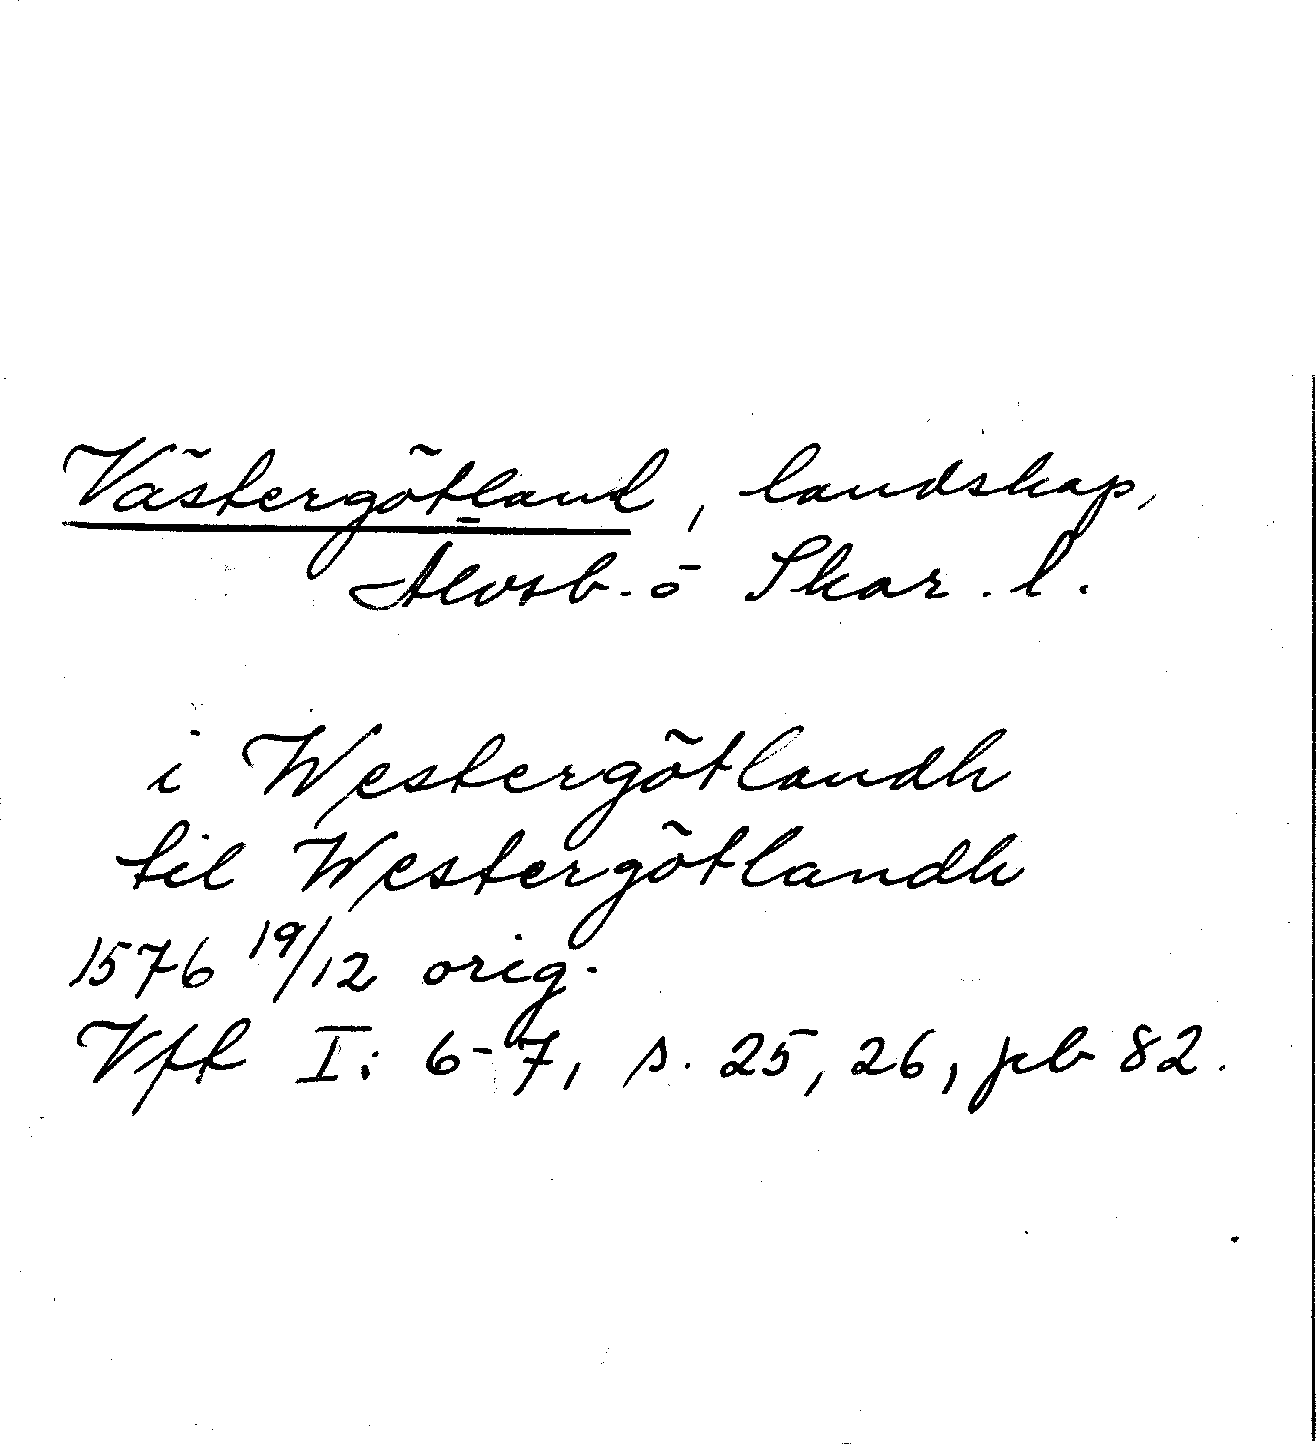 Västergötland, landskap,
Älvsb. o Skar. l.
i Westergötlandh
til Westergötlandh
1576 19/12 orig.
Vft I: 6-7, s. 25, 26, jeb 82.